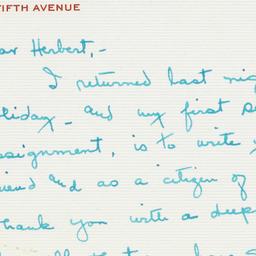 FIFTH AVENUE
ar Herbert,-
I returned last nig
liday - and my first
ssignment, is to write
iend and as a citizen of
hank you with a deep